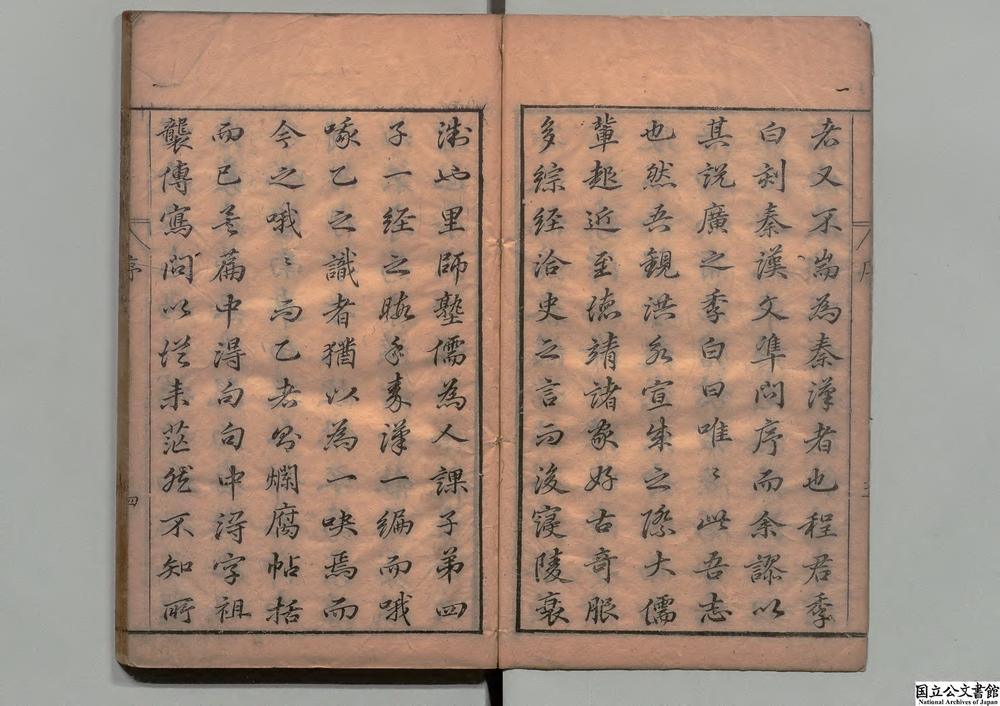 一
老又不耑為秦漢者也程君季
白刻秦漢文準問序而余謬以
其說廣之季白曰唯〻此吾志
也然吾觀洪永宣成之際大儒
輩起近至德靖諸家好古奇服
多綜經洽史之言而後寖陵衰
序
里師塾儒為人課子弟四
子一經之暇手秦漢一編而哦
啄乙之識者猶以為一吷焉而
今之哦〻乙者腐帖括
而已篇中得句句中得字祖
襲傳寫問以従来茫然不知所
四
国立公文書館
National Archives of Japan